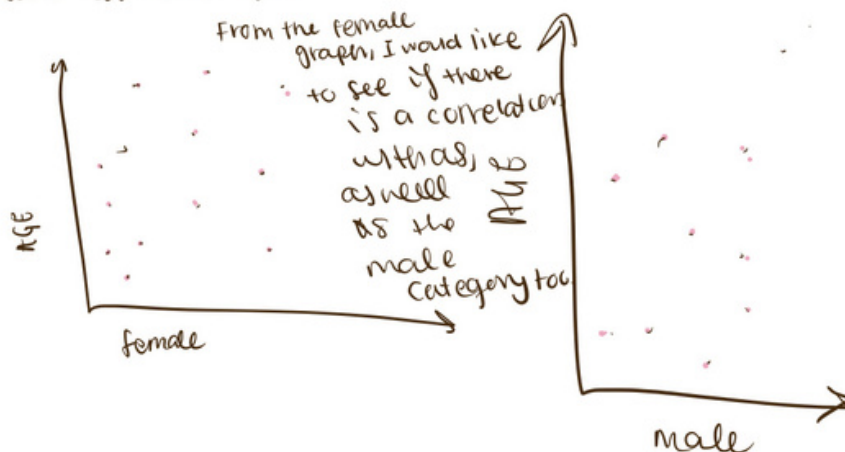 From the female
graph, I would like
to see if there
is a correlation
with as,
as well
as the
male
category too.
AGE
female
AGE
male